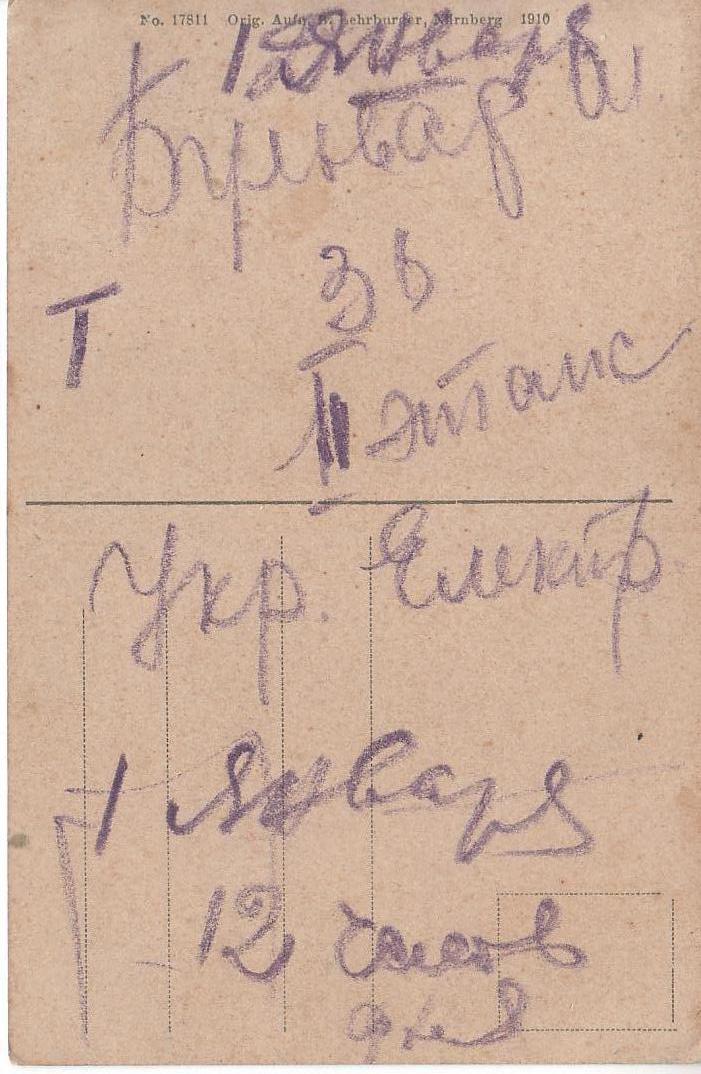 No. 17811 Orig. Aufn. S. Lehrburger, Nürnberg 1910
12 Января
Бульвар
36
I
II этаж
Укр. Електр.
1 Января
12 часов
дня